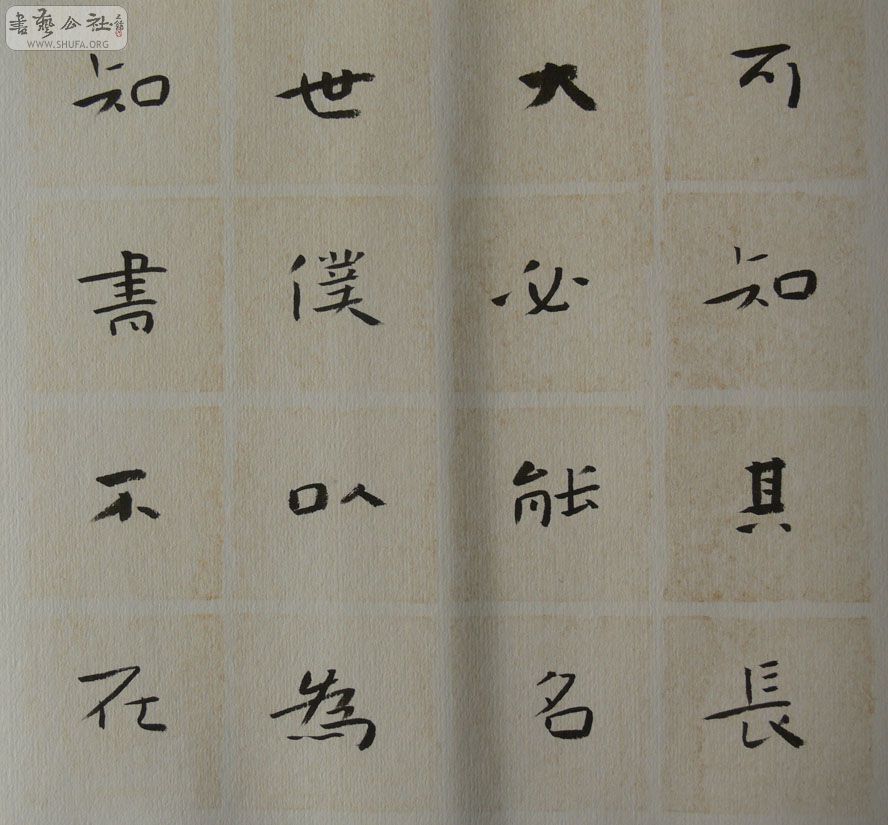 可知其長
大必能名
世僕以為
知書不在
書藝公社
WWW.SHUFA.ORG